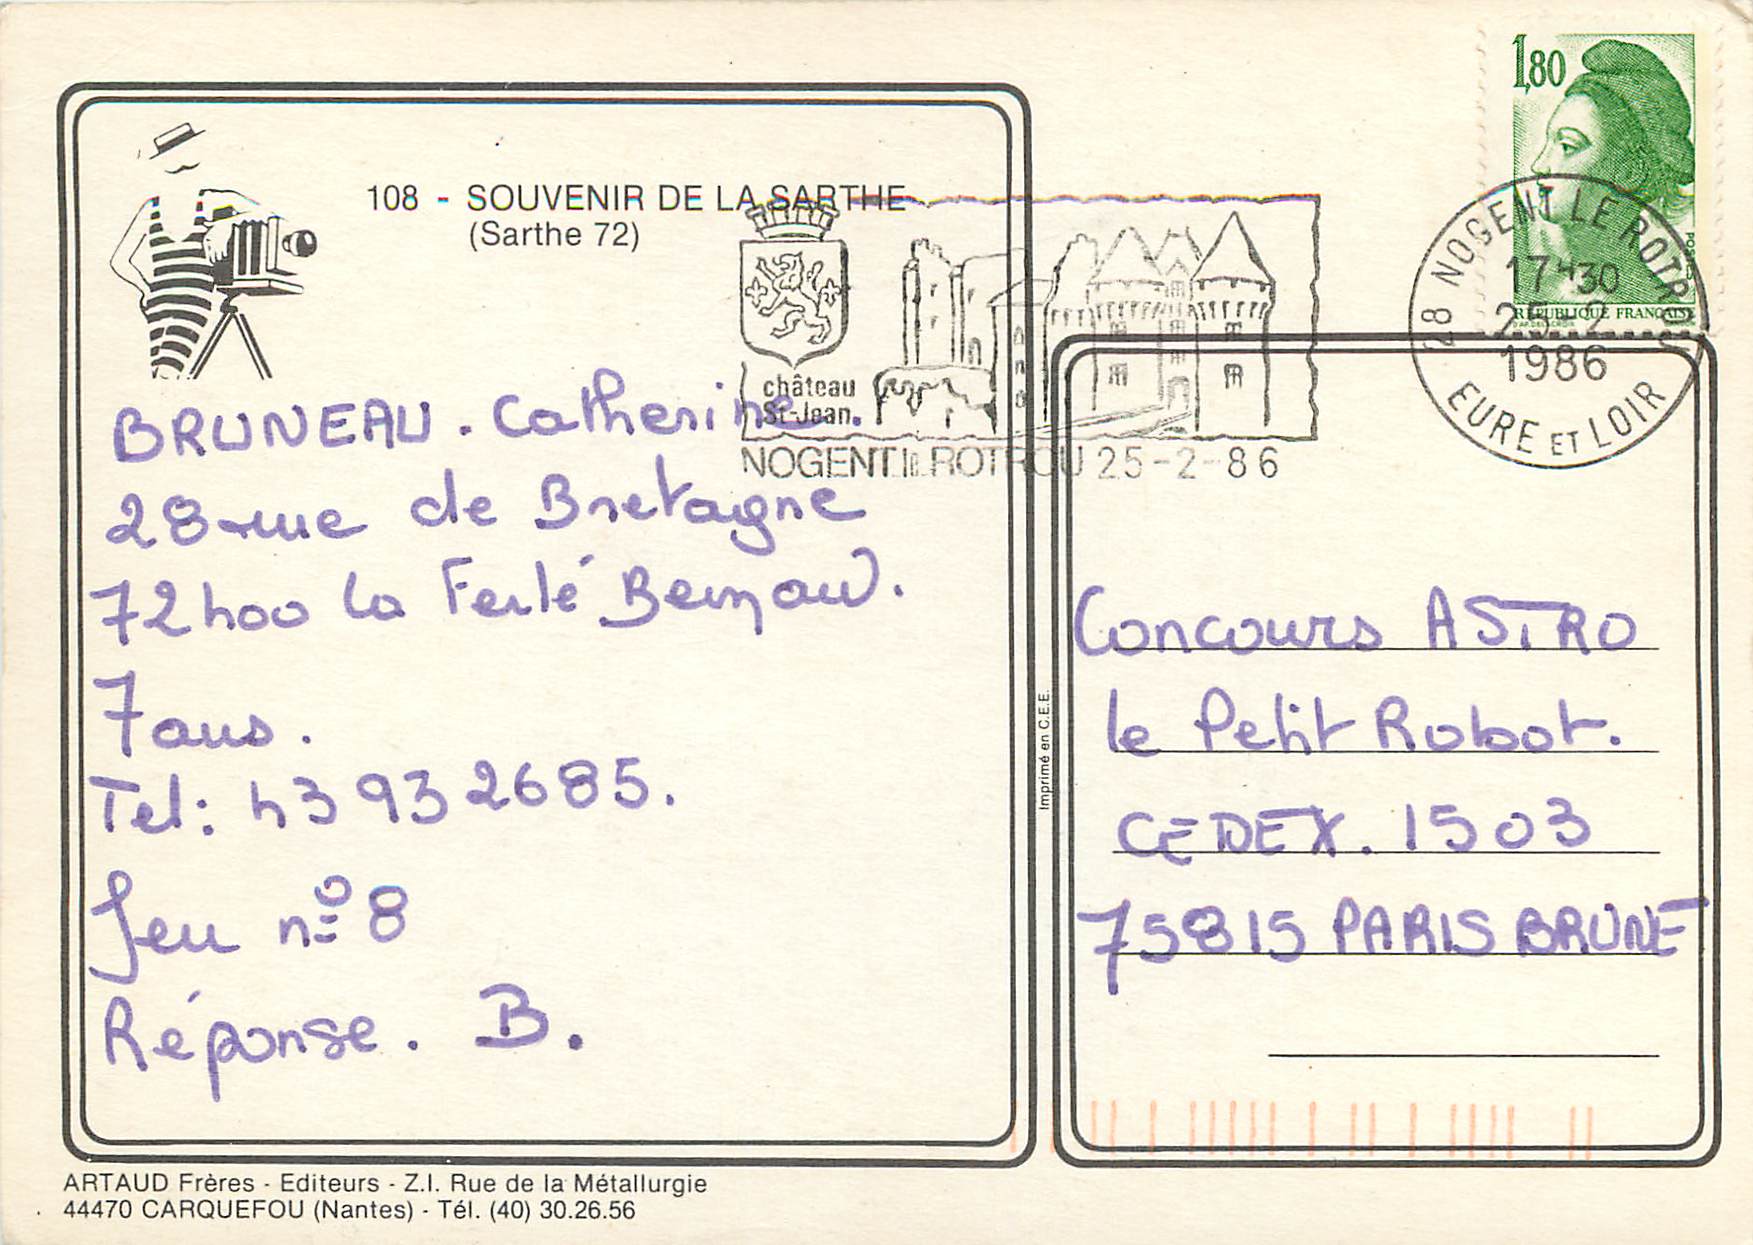 108 - SOUVENIR DE LA SARTHE
(Sarthe 72)
BRUNEAU. Catherine.
28 rue de Bretagne
72400 la Ferté Bernard.
7 ans.
Tel: 43 93 2685.
Jeu n° 8
Réponse. B.
ARTAUD Frères - Editeurs - Z.I. Rue de la Métallurgie
44470 CARQUEFOU (Nantes) - Tél. (40) 30.26.56
Imprimé en C.E.E.
château
St-Jean
NOGENT LE ROTROU 25-2-86
1,80
RÉPUBLIQUE FRANÇAISE
28 NOGENT LE ROTROU
17H30
25-2
1986
EURE ET LOIR
Concours ASTRO
le Petit Robot.
CEDEX. 1503
75815 PARIS BRUNE